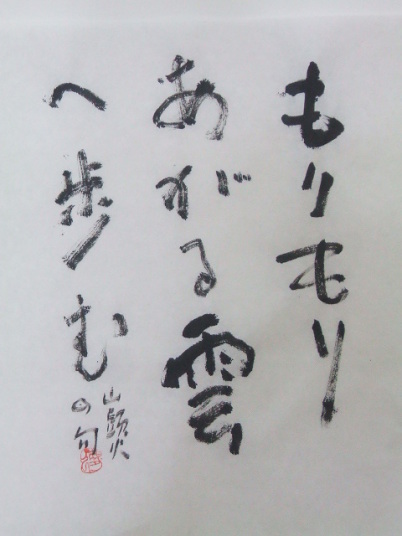 もりもり
あがる雲
へ歩む
山頭火
の句